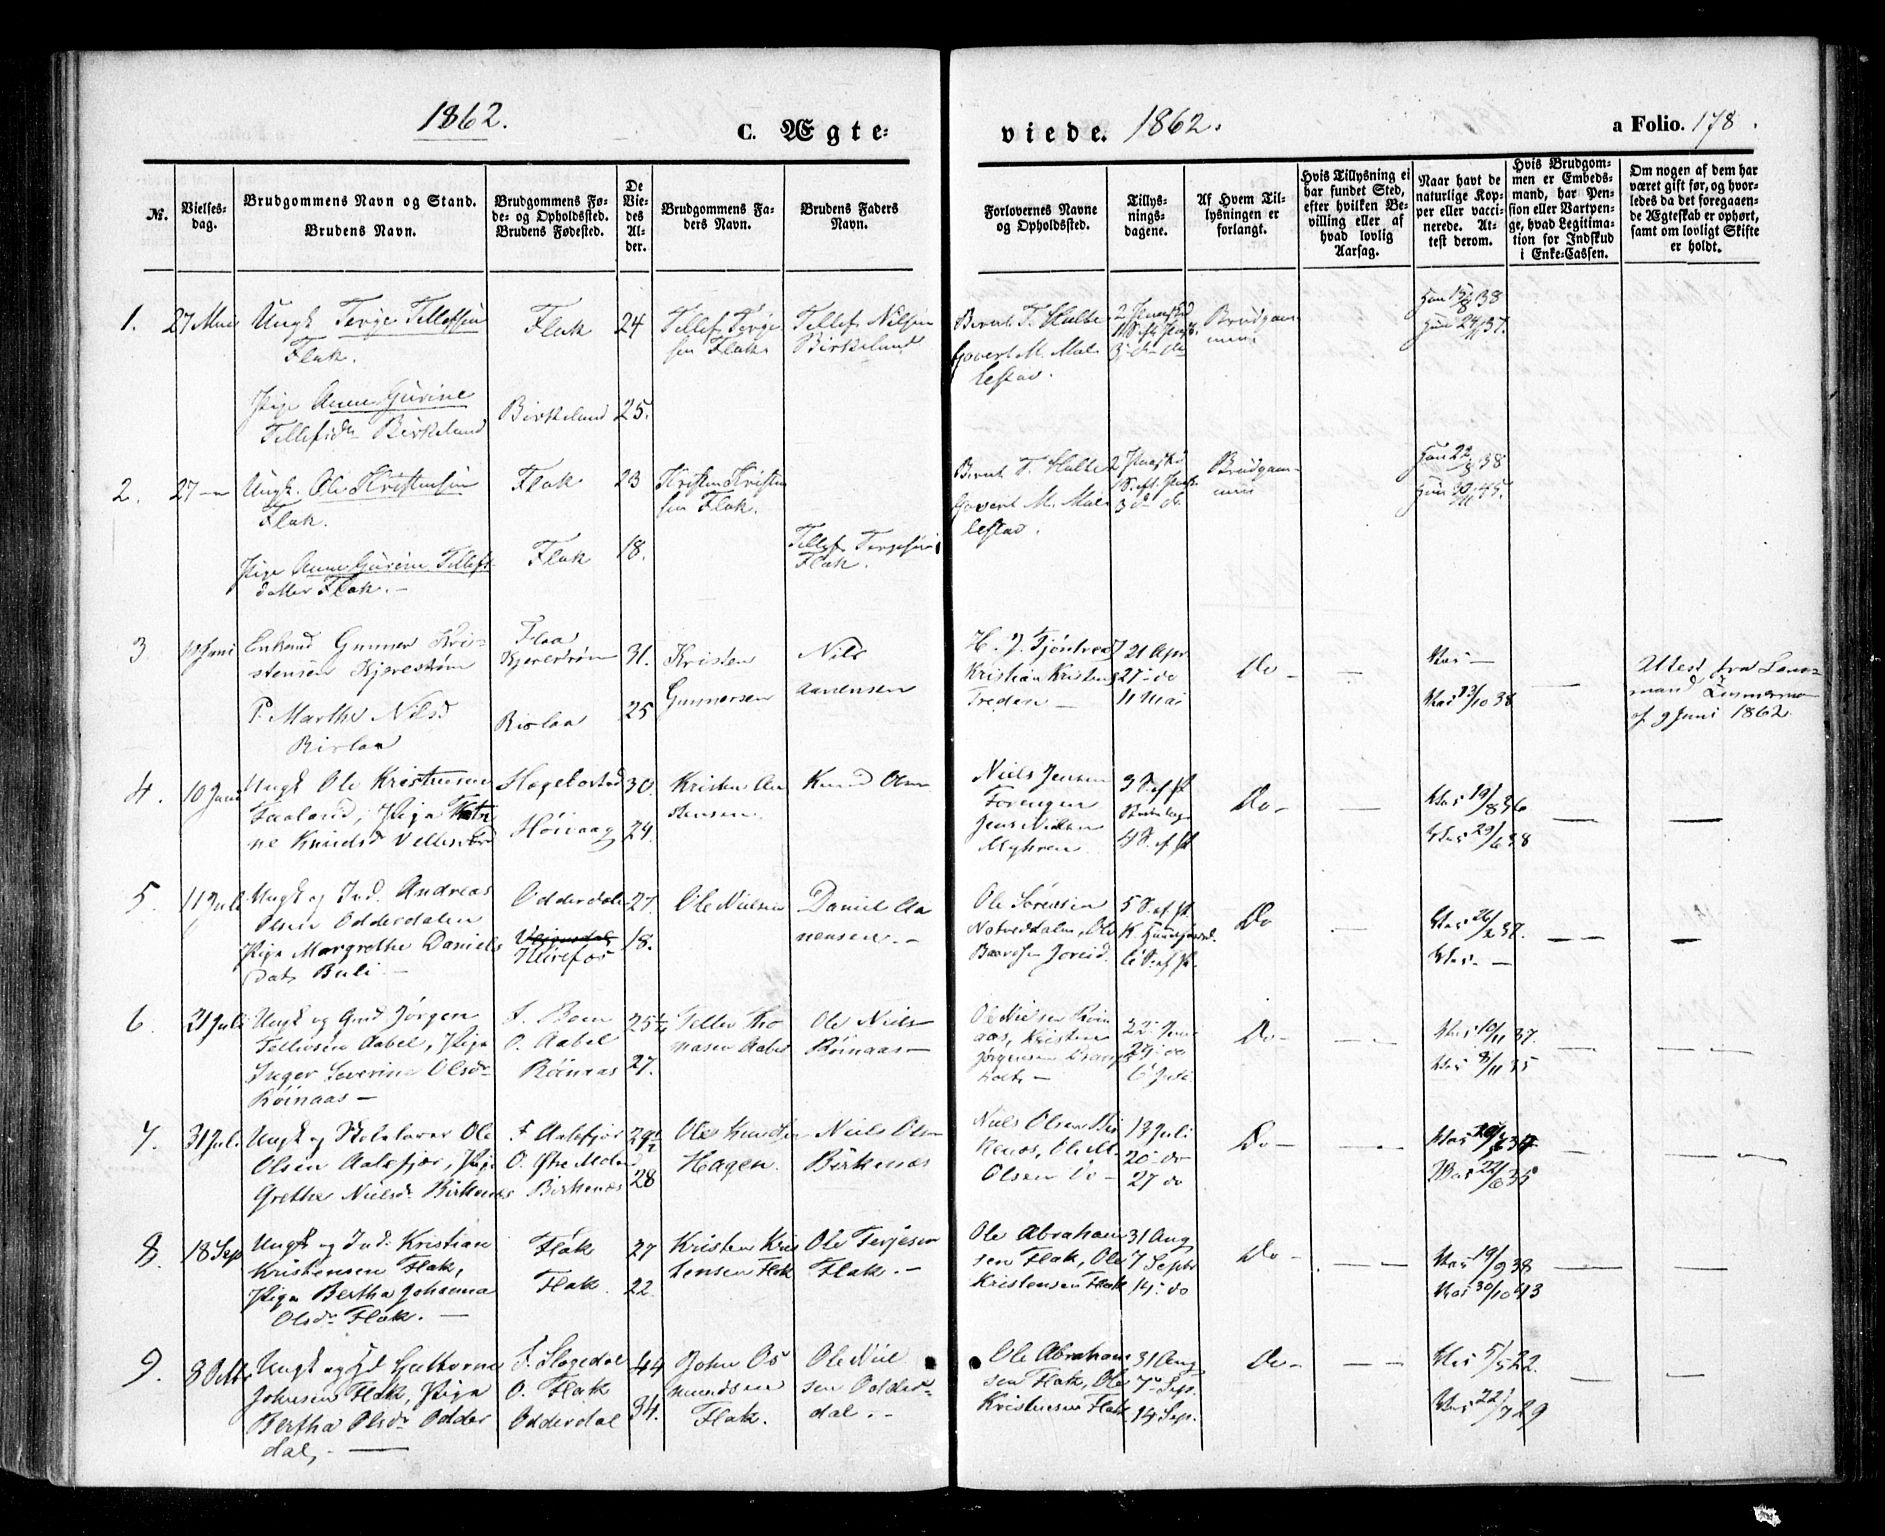 1862.
C. Ægte-
viede. 1862.
a Folio. 178.
No.
Vielses-
dag.
Brudgommens Navn og Stand.
Brudens Navn.
Brudgommens Fø-
de- og Opholdssted.
Brudens Fødested.
De
Vie-
des
Al-
der.
Brudgommens Fa-
ders Navn.
Brudens Faders
Navn.
Forlovernes Navne
og Opholdssted.
Tillys-
nings-
dagene.
Af Hvem Til-
lysningen er
forlangt.
Hvis Tillysning ei
har fundet Sted,
efter hvilken Be-
villing eller af
hvad lovlig
Aarsag.
Naar havt de
naturlige Kop-
per eller vacci-
nerede. At-
test derom.
Hvis Brudgom-
men er Embeds-
mand, har Pen-
sion eller Vartpen-
ge, hvad Legitima-
tion for Indskud
i Enke-Cassen.
Om nogen af dem har
været gift før, og hvor-
ledes da det foregaaen-
de Ægteskab er ophørt,
samt om lovligt Skifte
er holdt.
1.
27 Mai
Ungk Terje Tellefsen
Flak.
Pige Anne Gurine
Tellefsdr Birkeland
Flak
Birkeland
24
25.
Tellef Terje-
sen Flak
Tellef Nilsen
Birkeland
Bernt T. Hulte
Govert M. Mol-
lestad.
Brudgom-
men
Ham 15/8 38
Hun 24/11 37.
2.
27
Ungk. Ole Kristensen
Flak.
Pige Anne Gurine Tellefs
datter Flak. -
Flak
Flak
23
18.
Kristen Kristen
sen Flak.
Tellef Terjesen
Flak.
Bernt T. Hulte
Govert M. Mol-
lestad.
Brudgom-
men
Ham 22/8 38
3
Enkemd Gunner Kri-
stensen Kjerestrøm
P. Marthe Nilsd
Birlaa
Flaa
Kjerestrøm
Birlaa
31.
25
Kristen
Gunnersen
Nils
Aanensen
Kristian Kristens
Treden -
21 Apr
27 - do
11 Mai
Do -
Vac -
Vac 13/10 38
Attest fra Lens-
mand
af 9 Juni 1862.
4.
10 Juni
Ungk Ole Kristensen
Faaland, Pige
ne Knudsd
Hægebostad
30.
24.
Kristen
stensen.
Knud Olsen
Niels Jensen
Jens Nielsen
Myhren
3 S. ef. P.
4 S. ef. P.
Do -
Vac 19/8 36
Vac 29/6 38
5.
11 Juli
Ungk og Ind. Andreas
Olsen Odderdalen
Pige Margrethe Daniels
Dat. Buli -
Odderdale
27.
18.
Ole Nielsen
Daniel Aa
nensen. -
Ole Sørensen
5 S. ef. P.
6 S. ef. P.
Do
Vac 26/2 37.
Vac. -
6.
31 Juli
Ungk og Gmd Jørgen
Tellefsen Aabel, Pige
Inger Severine Olsdr
Røinaas -
F. Boen
O. Aabel
Røinaas
25½
27.
Tellev Tho
masen Aabel
Ole Niels-
Røinaas -
Ole Nielsen Røin
aas, Kristen
Jørgensen
22 Juni
29 - do
6 Juli
Do -
Vac 10/11 37.
Vac 8/11 35
7.
31 Juli
Ungk og Skolelærer Ole
Olsen Aalefjær, Pige
Grethe Nielsd. Birkenæs
F Aalefjær
O. Øtre
Birkenæs
29½
28
Ole Knudsen
Hagen.
Niels Olsen
Birkenæs
Niels Olsen Bir
kenæs, Ole M.
Olsen Do -
13 Juli
20 - do
27 do
Do -
Vac 22/6 35
8.
18 Sep
Ungk og Ind. Kristian
Kristensen Flak,
Pige Bertha Johanna
Olsdr Flak. -
Flak
Flak.
27
22
Kristen Kris
tensen Flak
Ole Terjesen
Flak. -
Ole Abraham
sen Flak, Ole
Kristensen Flak
31 Aug
7 Septr
14 - do
Do -
Vac 19/9 38
Vac 30/10 43
9.
8 Octbr
Ungk og Id Guthorm
Johnsen Flak, Pige
Bertha Olsdr Odder
dal, -
F. Hægedal
O. Flak
Odderdal
44
34.
John Os
mundsen
Flak.
Ole Niel
sen Odder-
dal. -
Ole Abraham
sen Flak, Ole
Kristensen Flak
31 Aug
7 - Sep.
14 Sep.
Do -
Vac 5/5 22.
Vac 22/7 29